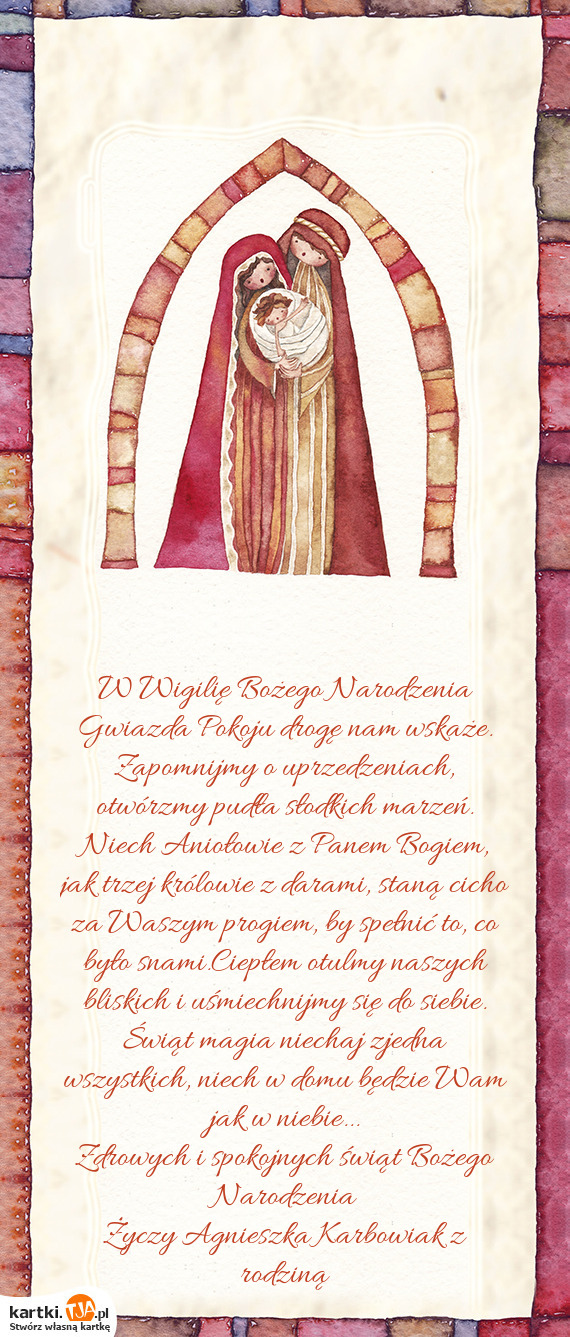 W Wigilię Bożego Narodzenia
Gwiazda Pokoju drogę nam wskaże.
Zapomnijmy o uprzedzeniach,
otwórzmy pudła słodkich marzeń.
Niech Aniołowie z Panem Bogiem,
jak trzej królowie z darami, staną cicho
za Waszym progiem, by spełnić to, co
było snami.Ciepłem otulmy naszych
bliskich i uśmiechnijmy się do siebie.
Świąt magia niechaj zjedna
wszystkich, niech w domu będzie Wam
jak w niebie...
Zdrowych i spokojnych świąt Bożego
Narodzenia
Życzy Agnieszka Karbowiak z
rodziną
kartki.TJA.pl
Stwórz własną kartkę